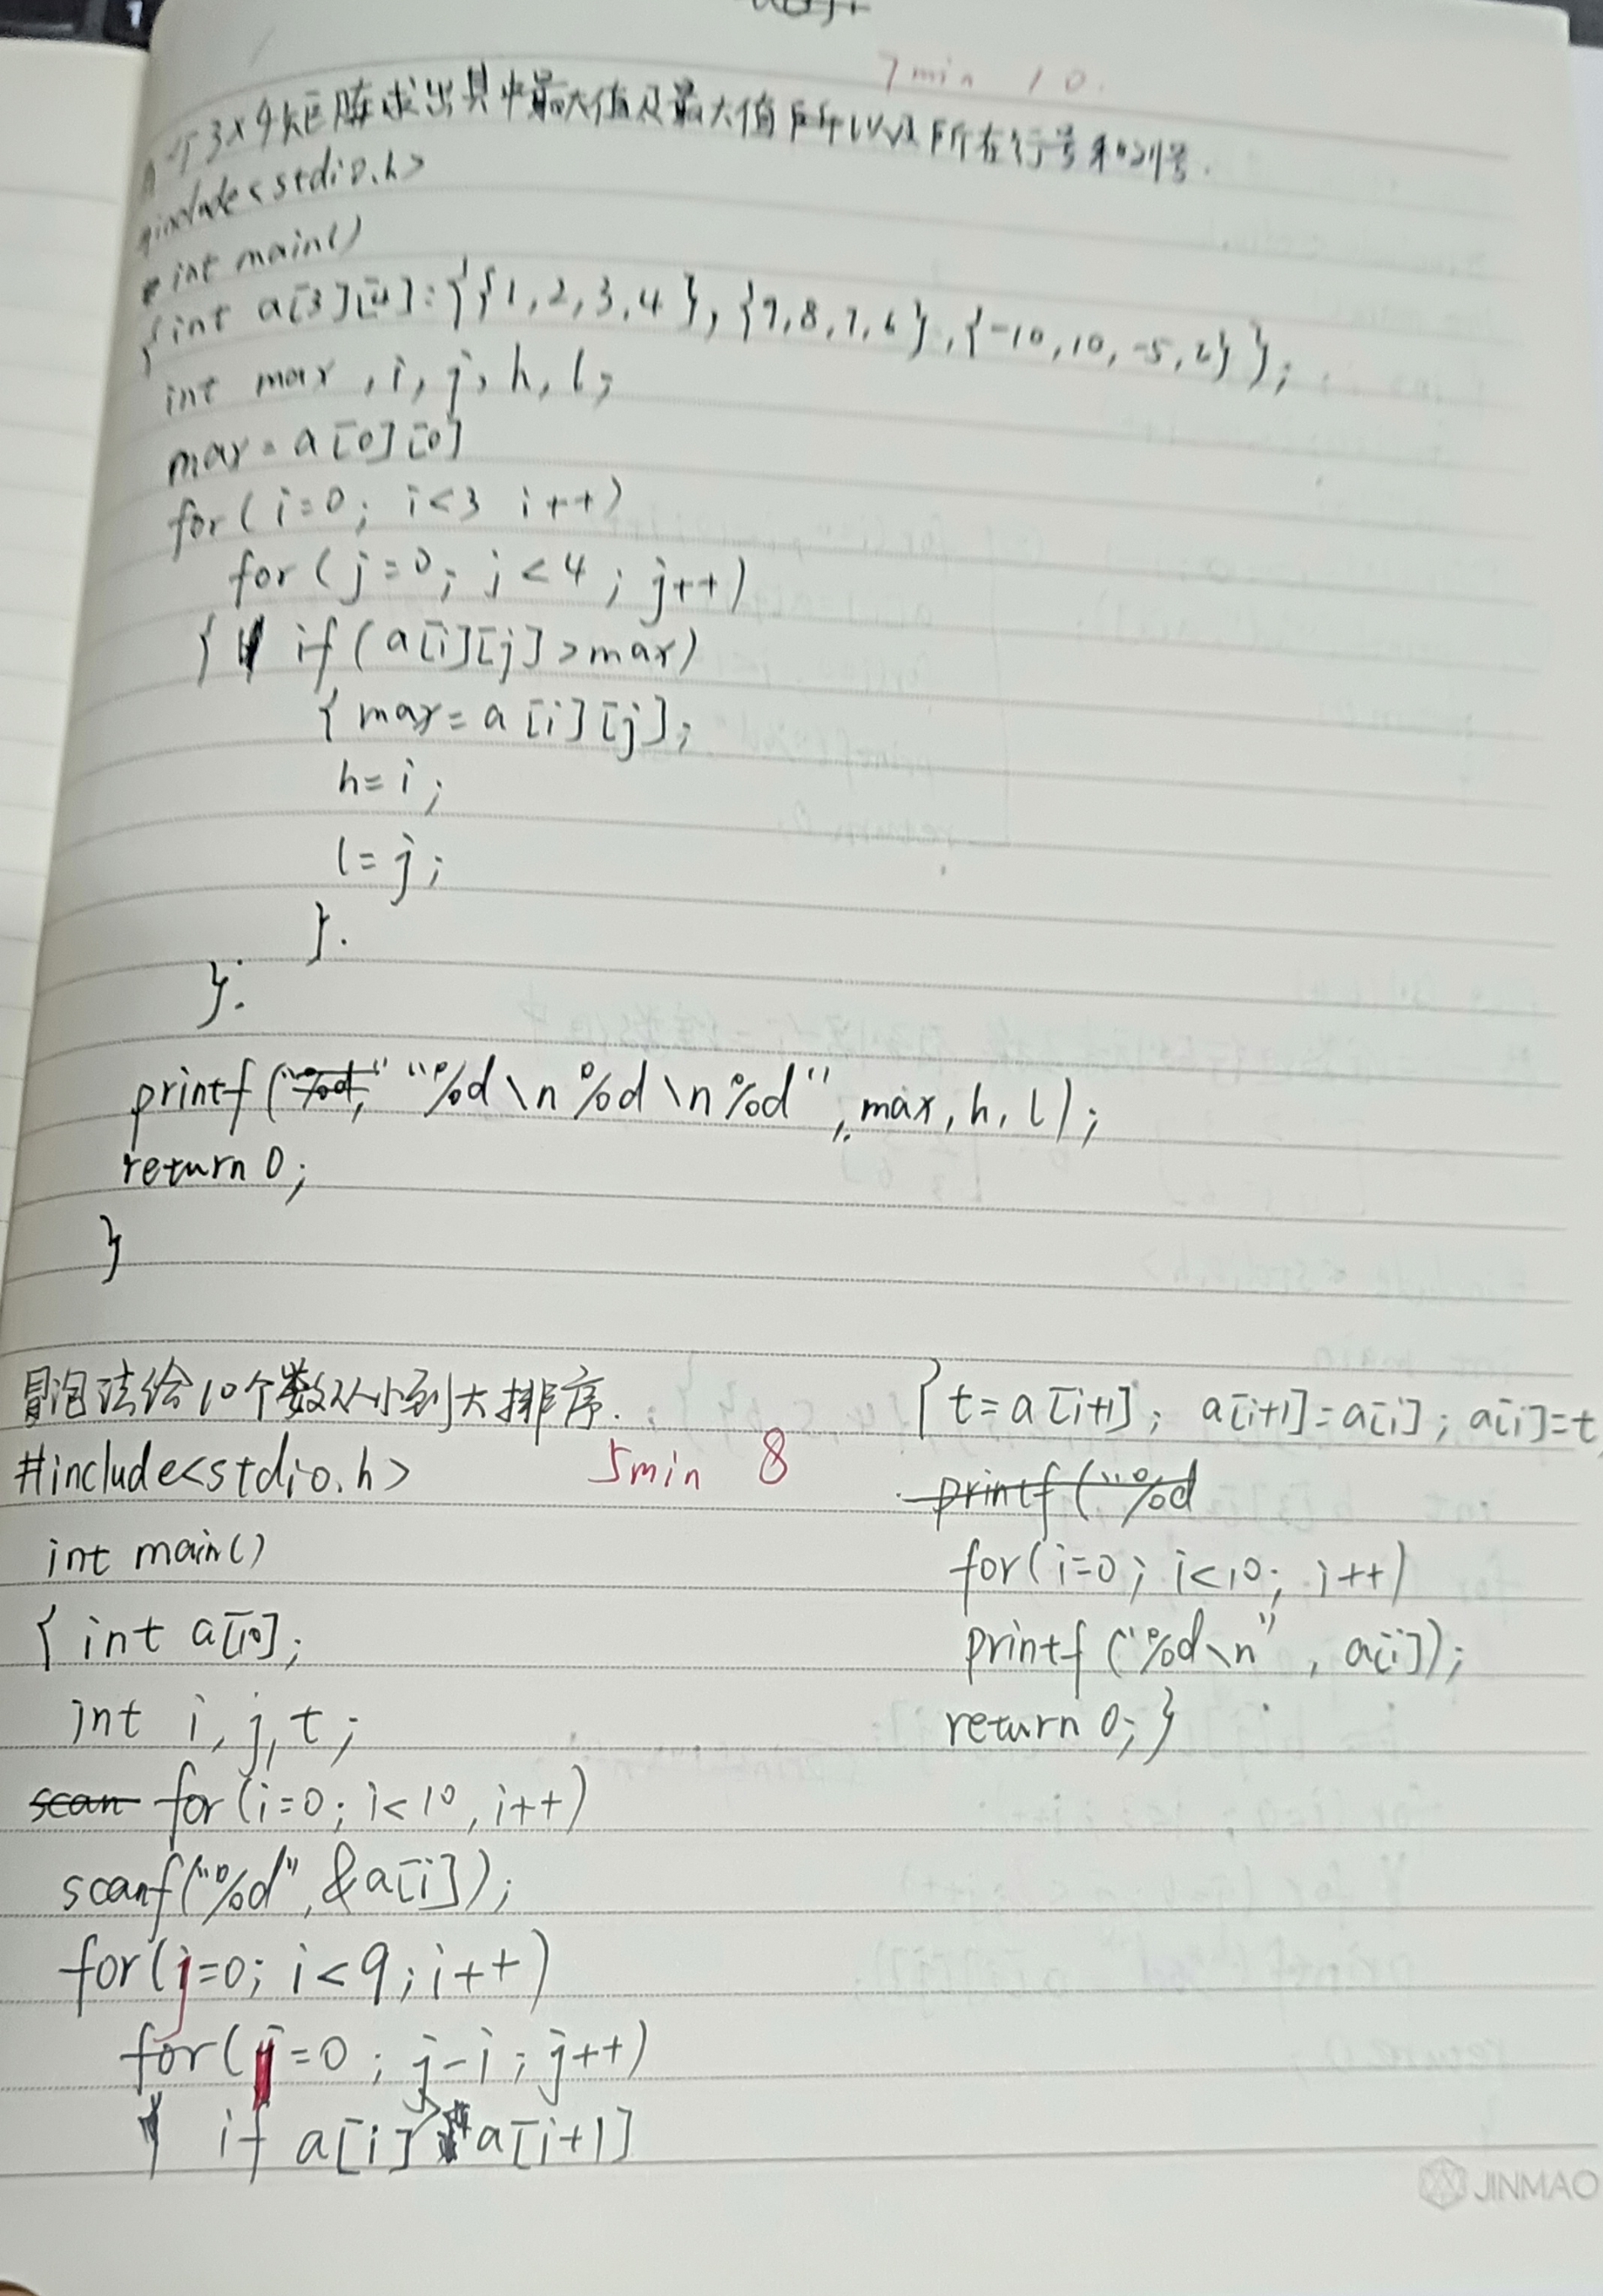 7min 10.
3×4矩阵求出其中最大值及最大值所以及所在行号和列号.
#include<stdio.h>
int main()
{int a[3][4]={{1,2,3,4},{9,8,7,6},{-10,10,-5,2}};
int max,i,j,h,l;
max=a[0][0]
for(i=0; i<3 i++)
for(j=0; j<4; j++)
{ if(a[i][j]>max)
{max=a[i][j];
h=i;
l=j;
}.
}.
printf("%d," "%d\n%d\n%d",max,h,l);
return 0;
}
冒泡法给10个数从小到大排序.
5min 8
#include<stdio.h>
int main()
{int a[10];
int i,j,t;
scan for(i=0;i<10,i++)
scanf("%d",&a[i]);
for(j=0; i<9;i++)
for(j=0; j-i; j++)
if a[i]>a[i+1]
{t=a[i+1]; a[i+1]=a[i]; a[i]=t
printf("%d
for(i=0; i<10; i++)
printf("%d\n", a[i]);
return 0;}
JINMAO